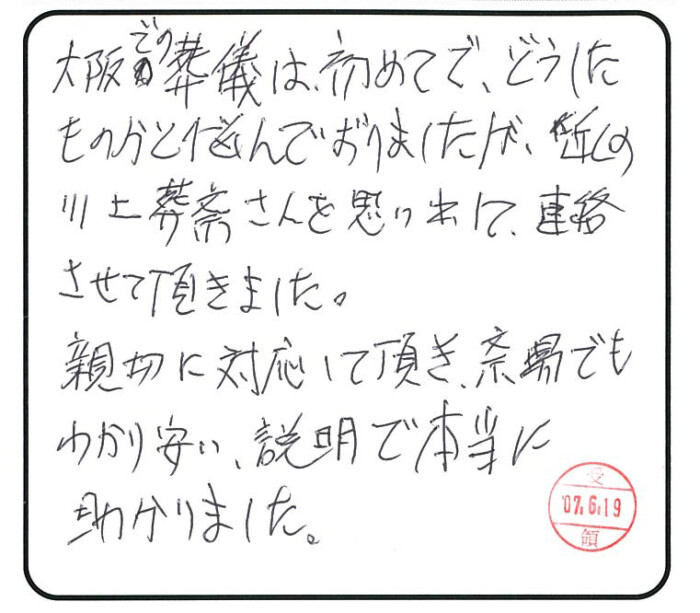 大阪での葬儀は、初めてで、どうした
ものかと悩んでおりましたが、近くの
川上葬斎さんを思い出して、連絡
させて頂きました。
親切に対応して頂き、斎場でも
わかり安い、説明で本当に
助かりました。
受
'07.6.19
領